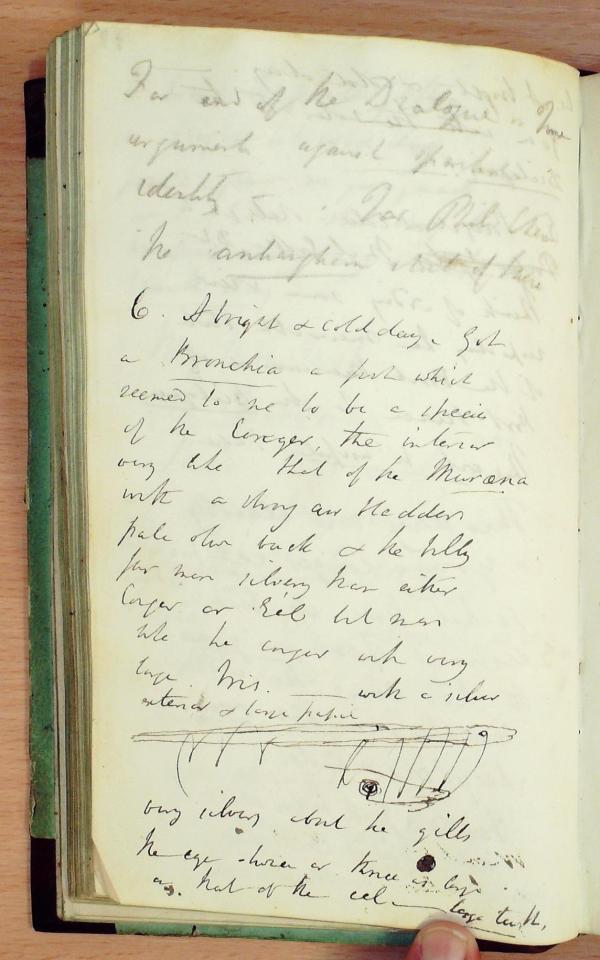 For end of the Dialogue Some
arguments against
identity. For Phil
the state of
6. A bright & cold day. Got
a Bronchia a fish which
seemed to me to be a species
of the Conger, the interior
very like that of the Muræna
with a strong air bladder
pale olive back & the belly
far more silvery than either
Conger or Eel but more
like the conger with very
large Iris. with a silver
exterior & large pupil
very silvery about the gills
the eye twice or thrice as large
as that of the eel – large teeth,